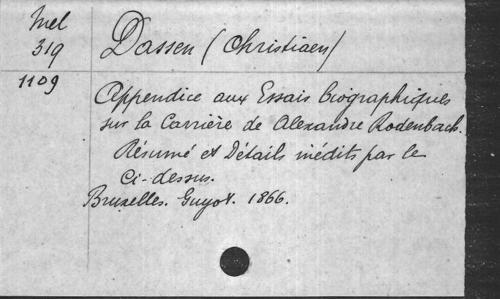 Mel
319
1109
Dassen (Christiaen)
Appendice aux Essais biographiques
sur la Carrière de Alexandre Rodenbach.
Résumé et Détails inédits par le
Ci-dessus.
Bruxelles. Guyot. 1866.